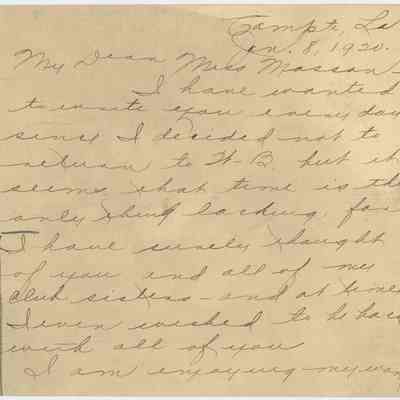 Campti, La
Jan. 8, 1920.
My Dear Miss Masson -
I have wanted
to write you every day
since I decided not to
return to H-B. but it
seems that time is the
only thing lacking, for
I have surely thought
of you and all of my
club sisters - and at times
I even wished to be back
with all of you
I am enjoying my wor